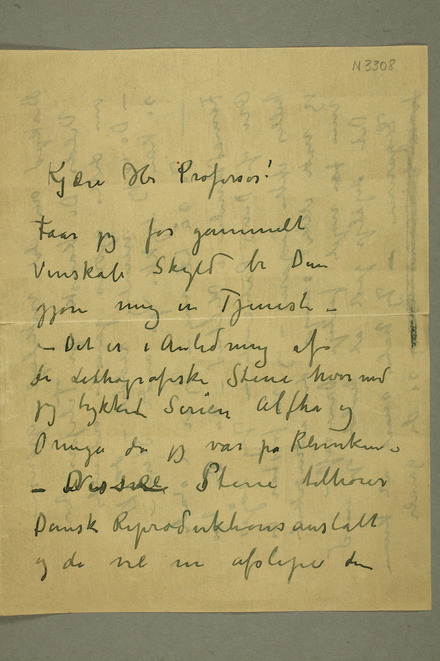 N 3308
Kjære Hr Profersor!
Faar jeg for gammelt
Venskab Skyld be Dem
gjøre mig en Tjeneste –
– Det er i Anledning af
de Lithografiske Stene hvormed
jeg tykked Serien Alfha og
Omega da jeg var på Kliniken –
– Stene tilhører
Dansk Reproduktionsanstalt
og de vil nu afslipe dem